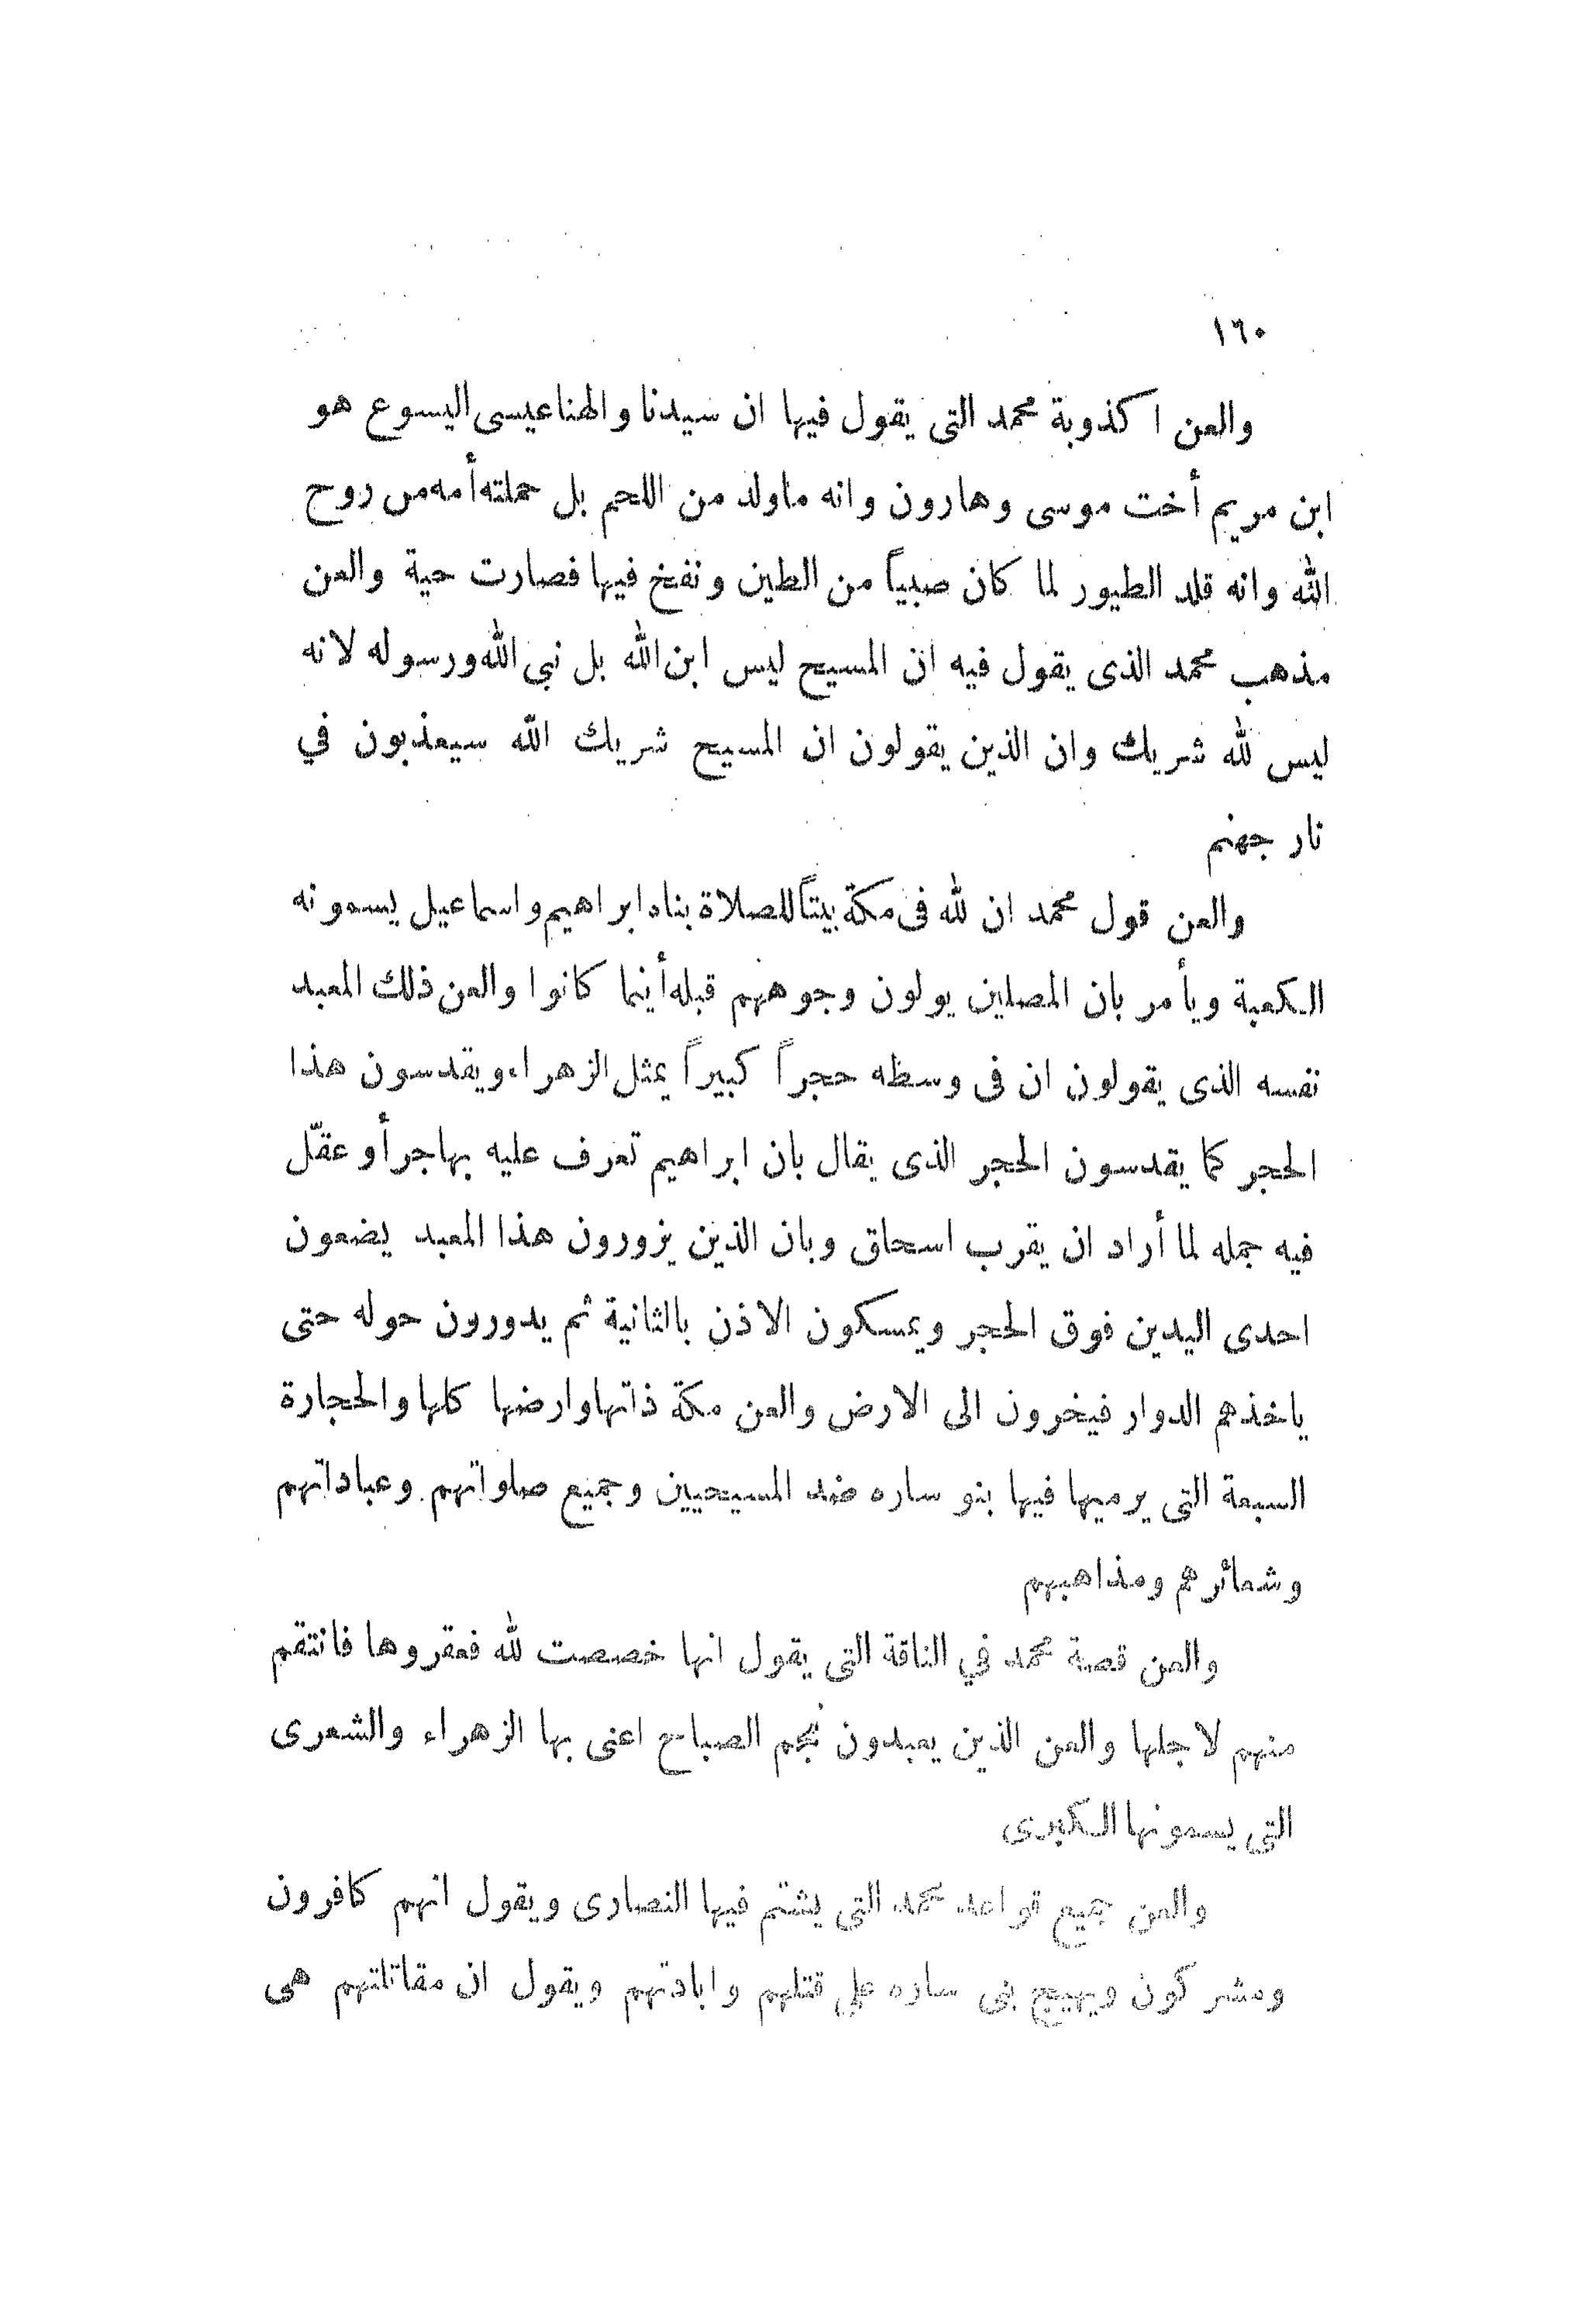 ١٦٠
والعن اكذوبة محمد التى يقول فيها ان سيدنا والهنا عيسى اليسوع هو
ابن مريم أخت موسى وهارون وانه ماولد من اللحم بل حملته أمه من روح
الله وانه قلد الطيور لما كان صبياً من الطين ونفخ فيها فصارت حية والعن
مذهب محمد الذى يقول فيه ان المسيح ليس ابن الله بل نبى الله ورسوله لانه
ليس لله شريك وان الذين يقولون ان المسيح شريك الله سيعذبون في
نار جهنم
والعن قول محمد ان لله فى مكة بيتاً للصلاة بناه ابراهيم واسماعيل يسمونه
الكعبة ويأمر بان المصلين يولون وجوههم قبله أينما كانوا والعن ذلك المعبد
نفسه الذى يقولون ان فى وسطه حجراً كبيراً يمثل الزهراء ويقدسون هذا
الحجر كما يقدسون الحجر الذى يقال بان ابراهيم تعرف عليه بهاجر أو عقّل
فيه جمله لما أراد ان يقرب اسحاق وبان الذين يزورون هذا المعبد يضعون
احدى اليدين فوق الحجر ويمسكون الاذن بالثانية ثم يدورون حوله حتى
ياخذهم الدوار فيخرون الى الارض والعن مكة ذاتها وارضها كلها والحجارة
السبعة التى يرميها فيها بنو ساره ضد المسيحيين وجميع صلواتهم وعباداتهم
وشعائرهم ومذاهبهم
والعن قصة محمد في الناقة التى يقول انها خصصت لله فعقروها فانتقم
منهم لاجلها والعن الذين يعبدون نجم الصباح اعنى بها الزهراء والشعرى
التى يسمونها الكبرى
والعن جميع قواعد محمد التى يشتم فيها النصارى ويقول انهم كافرون
ومشركون ويهيج بنى ساره على قتلهم وابادتهم ويقول ان مقاتلتهم هى